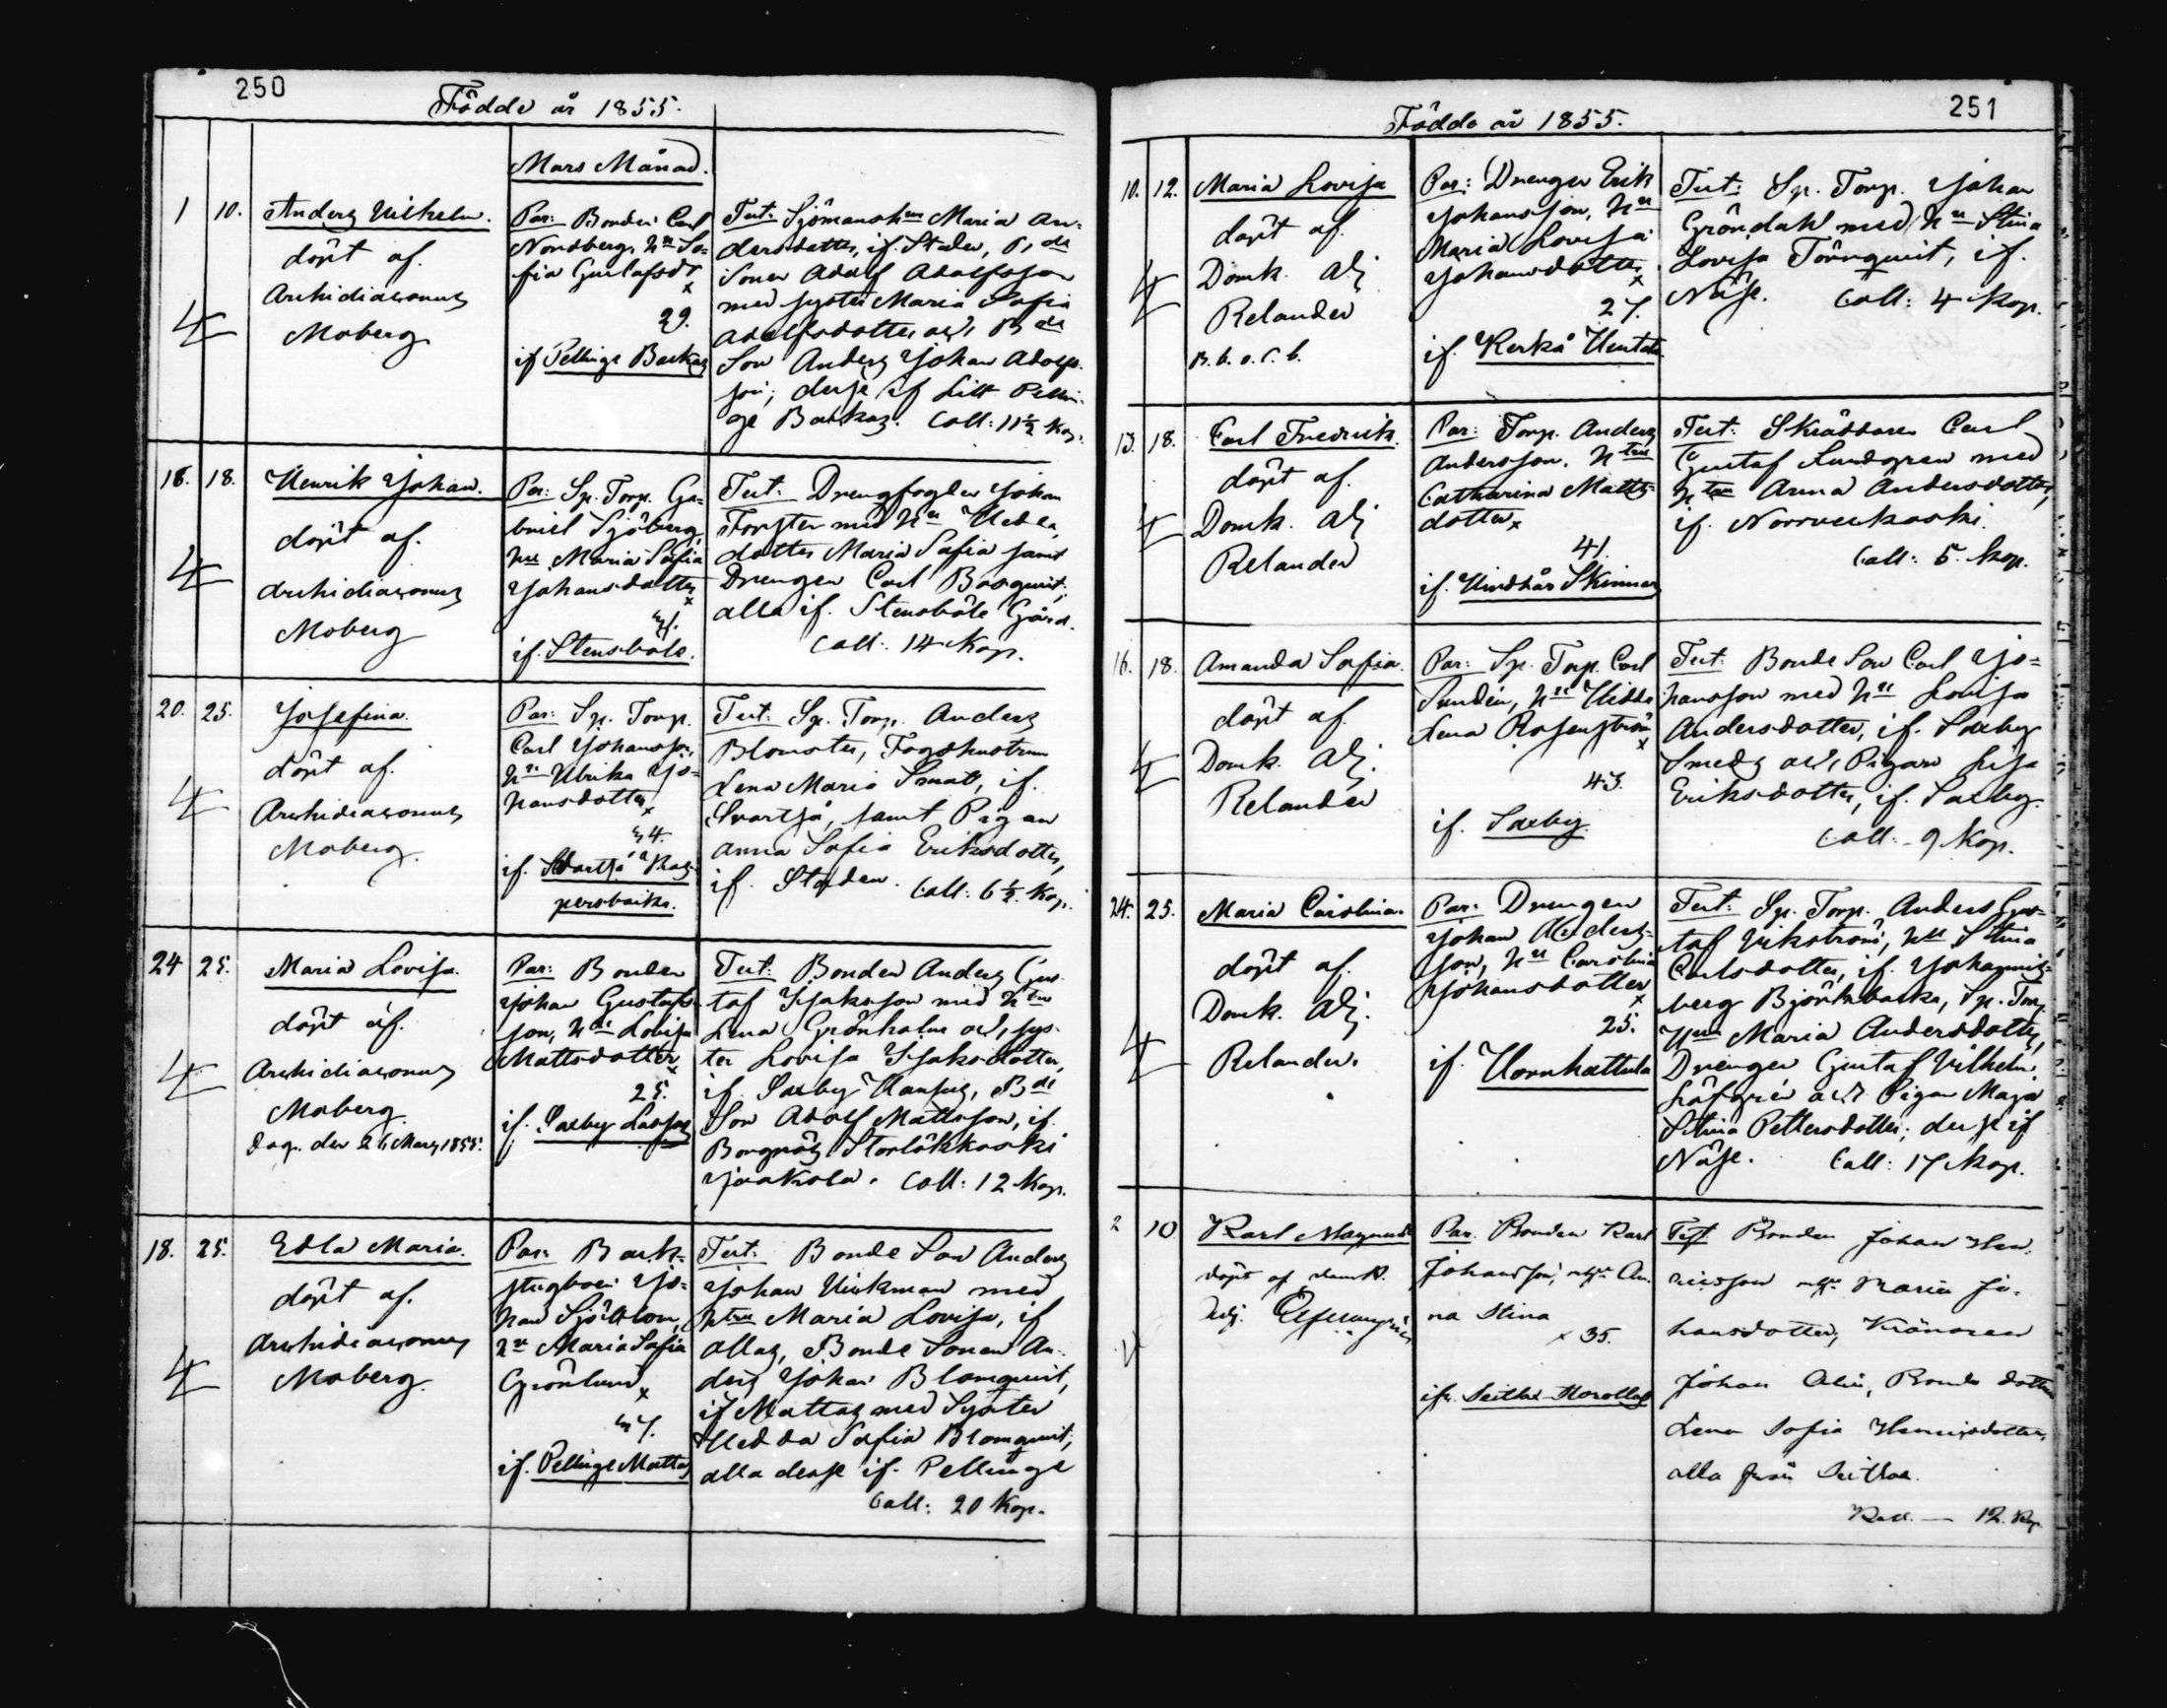 250
Födde år 1855.
Mars Månad.
1 10. Anders Wilhelm.
döpt af.
Archidiaconus
Moberg
Par: Bonden Carl
Nordberg, hu So-
fia Gustafsdr
29.
if Pellinge Backas
Test: Sjömanshu Maria An-
dersdotter, if. Staden, Bde
Sonen Adolf Adolfsson
med syster Maria Sofia
Adolfsdotter och Bde
Son Anders Johan Adolfs-
son; desse if Lill Pellin-
ge Backas. Coll: 11½ Kop.
16. 18. Henrik Johan.
döpt af.
Archidiaconus
Moberg
Par: Sp. Torp. Ga-
briel Sjöberg,
hu Maria Sofia
Johansdotter
if. Stensböle.
Test: Drengfogden Johan
Forster med hu Hedda,
dotter Maria Sofia samt
Drengen Carl Bosquist;
alla if. Stensböle Gård.
Coll: 14 Kop.
20. 25. Josefina.
döpt af.
Archidiaconus
Moberg.
Par: Sp. Torp.
Carl Johansson,
hu Ulrika Jo-
hansdotter
34.
if. Svartså Kas-
persbacka.
Test: Sp. Torp. Anders
Blomster, Fogdhustrun
Lena Maria Smat, if.
Svartså, samt Pigan
Anna Sofia Eriksdotter,
if. Staden. Coll: 6½ Kop.
24 25. Maria Lovisa.
döpt af.
Archidiaconus
Moberg.
Dag. den 26 Mars 1855.
Par: Bonden
Johan Gustafs-
son, hu Lovisa
Mattsdotter
25.
if. Saxby Lassas
Test: Bonden Anders Gus-
taf Isaksson med htru
Lena Grönholm och, sys-
ter Lovisa Isaksdotter,
if. Saxby Hansas, Bde
Son Adolf Mattsson, if.
Borgnäs Storlökkoski
Jaakola. Coll: 12 Kop.
18. 25. Edla Maria.
döpt af.
Archidiaconus
Moberg.
Par: Back-
stugboen Jo-
han Sjöblom,
hu Maria Sofia
Grönlund
37.
if. Pellinge Mattas
Test: Bonde Son Anders
Johan Wickman med
htru Maria Lovisa, if
allas, Bonde Sonen An-
ders Johan Blomquist,
if Mattas med Syster
Hedda Sofia Blomquist;
alla desse if. Pellinge
Coll: 20 Kop.
251
Födde år 1855.
10. 12. Maria Lovisa
döpt af.
Domk. Adj
Relander
B. b. o. C. b.
Par: Drengen Erik
Johansson, hu
Maria Lovisa
Johansdotter
27.
if. Kerkå Hentala
Test: Sp. Torp. Johan
Gröndahl med hu Stina
Lovisa Törnquist, if.
Näse. Coll: 4 Kop.
13. 18. Carl Fredrik.
döpt af.
Domk. Adj
Relander
Par: Torp. Anders
Andersson. htru
Catharina Matts-
dotter
41.
if. Hindhår Skinnars
Test: Skräddaren Carl
Gustaf Lundgren med
htru Anna Andersdotter,
if. Norrveckoski.
Coll: 5. Kop.
16. 18. Amanda Sofia.
döpt af.
Domk. Adj.
Relander
Par: Sp. Torp. Carl
Sundén, hu Hedda
Lena Rosenström
43.
if. Saxby.
Test: Bonde Son Carl Jo-
hansson med hu Lovisa
Andersdotter, if. Saxby
Smeds och, Pigan Lisa
Eriksdotter, if. Saxby.
Coll: 9 Kop.
24. 25. Maria Carolina
döpt af.
Domk. Adj.
Relander.
Par: Drengen
Johan Anders-
son, hu Carolina
Johansdotter
25.
if. Hornhattula
Test: Sp. Torp. Anders Gus-
taf Vikström, hu Stina
Carlsdotter, if. Johannis-
berg Björkbacka, Sp. Torp.
Hu Maria Andersdotter,
Drengen Gustaf Wilhelm
Löfgrén och Pigan Maja
Stina Pettersdotter; desse if
Näse. Coll: 17 Kop.
2 10 Karl Magnus
döpt af domk.
Adj.
Par. Bonden Karl
Johansson, An-
na Stina
35.
ifr. Seitlax
Test Bonden Johan Hen-
ricsson Maria Jo-
hansdotter,
Johan Bonde dottern
Lena Sofia Henricsdotter,
alla från Seitlax.
Koll. — 12. Kop.